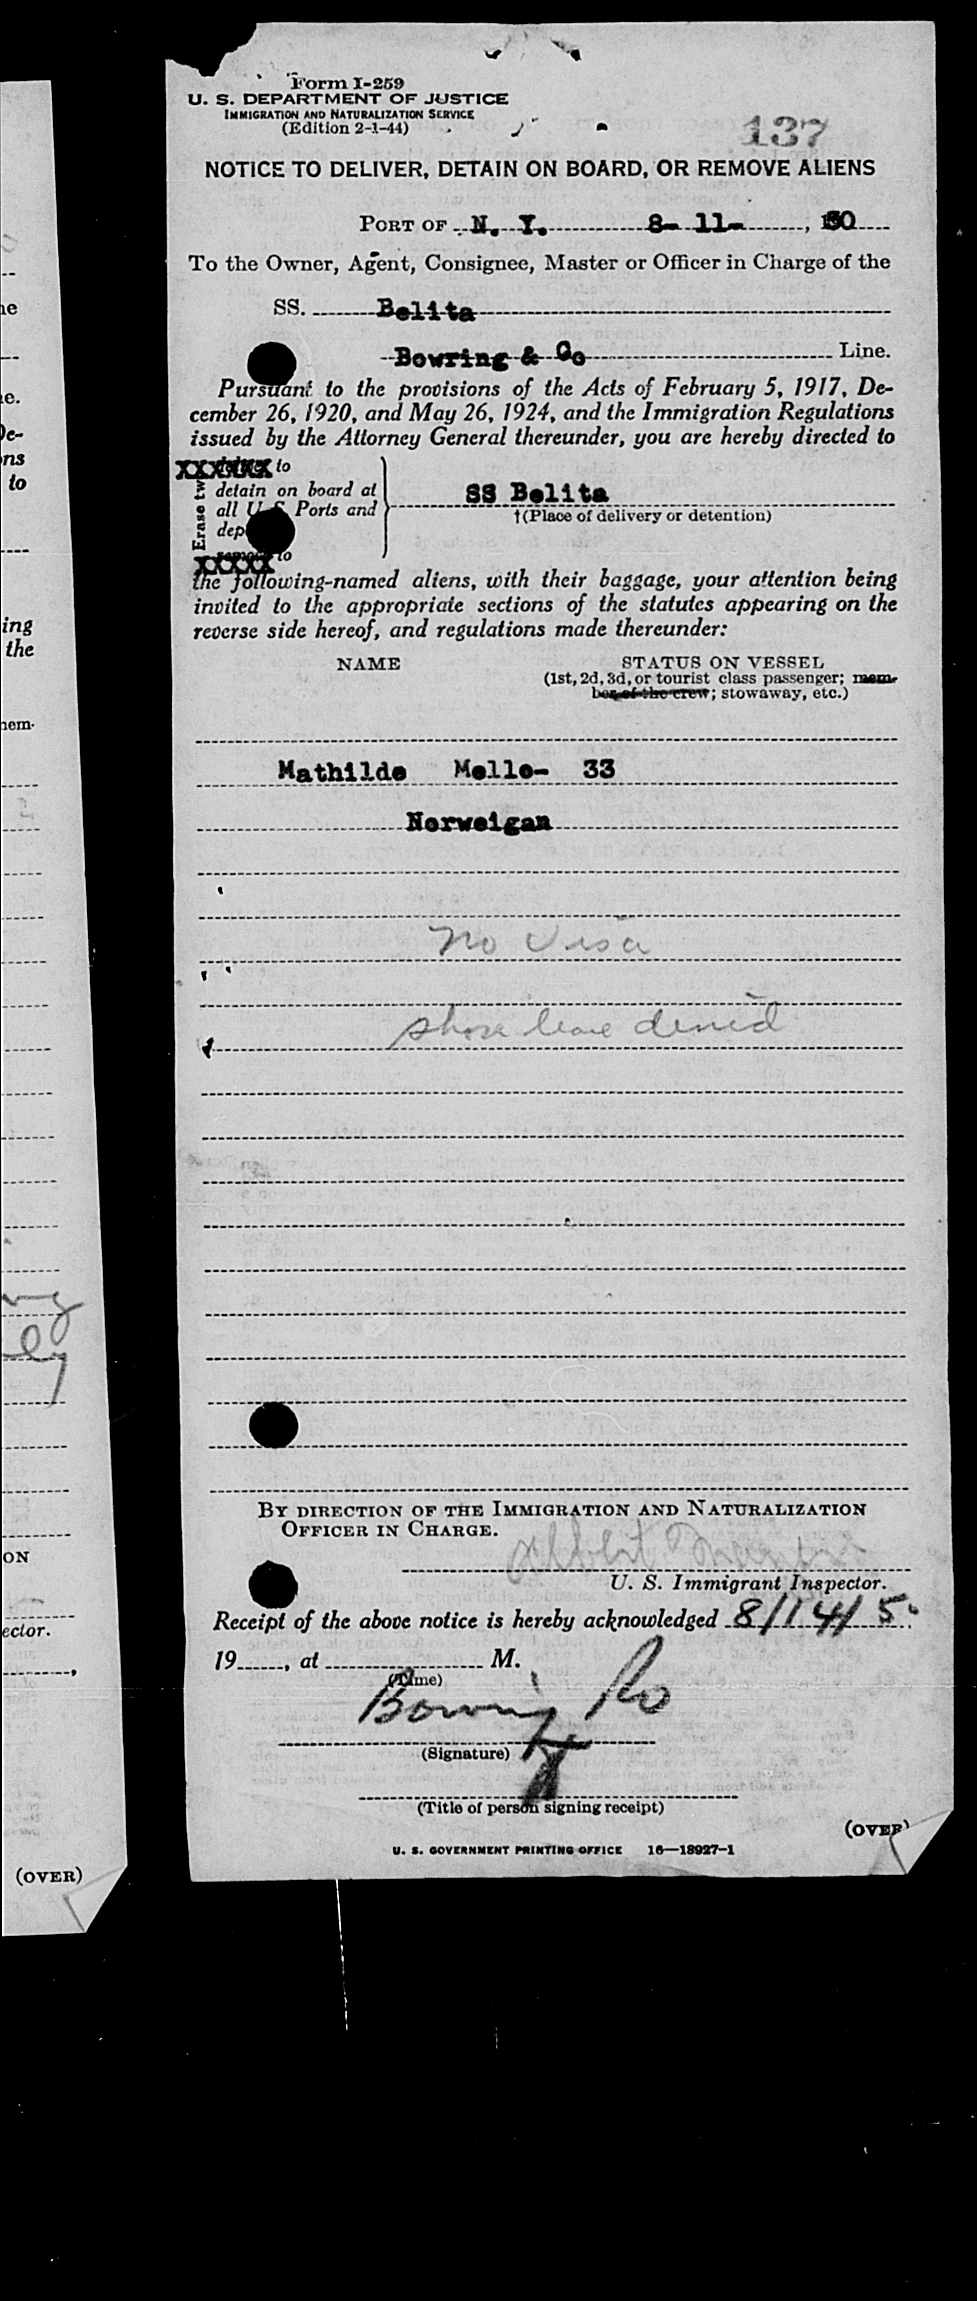 Form I-259
U. S. DEPARTMENT OF JUSTICE
IMMIGRATION AND NATURALIZATION SERVICE
(Edition 2-1-44)
137
NOTICE TO DELIVER, DETAIN ON BOARD, OR REMOVE ALIENS
PORT OF N. Y. 8- 11- , 50
To the Owner, Agent, Consignee, Master or Officer in Charge of the
SS. Belita
Bowring & Co Line.
Pursuant to the provisions of the Acts of February 5, 1917, De-
cember 26, 1920, and May 26, 1924, and the Immigration Regulations
issued by the Attorney General thereunder, you are hereby directed to
XXXXXX to
Erase tw
detain on board at
all U. S. Ports and
dep
SS Belita
†(Place of delivery or detention)
XXXXX to
the following-named aliens, with their baggage, your attention being
invited to the appropriate sections of the statutes appearing on the
reverse side hereof, and regulations made thereunder:
NAME STATUS ON VESSEL
(1st, 2d, 3d, or tourist class passenger; mem-
ber of the crew; stowaway, etc.)
Mathilde Melle- 33
Norweigan
No Visa
shore leave denied
BY DIRECTION OF THE IMMIGRATION AND NATURALIZATION
OFFICER IN CHARGE.
U. S. Immigrant Inspector.
Receipt of the above notice is hereby acknowledged 8/14/5
19 , at M.
(Time)
Bowring Co
(Signature)
(Title of person signing receipt)
(OVER)
U. S. GOVERNMENT PRINTING OFFICE 16—18927-1
ne
e.
De-
ns
to
ing
the
nem-
ly
ON
ector.
(OVER)